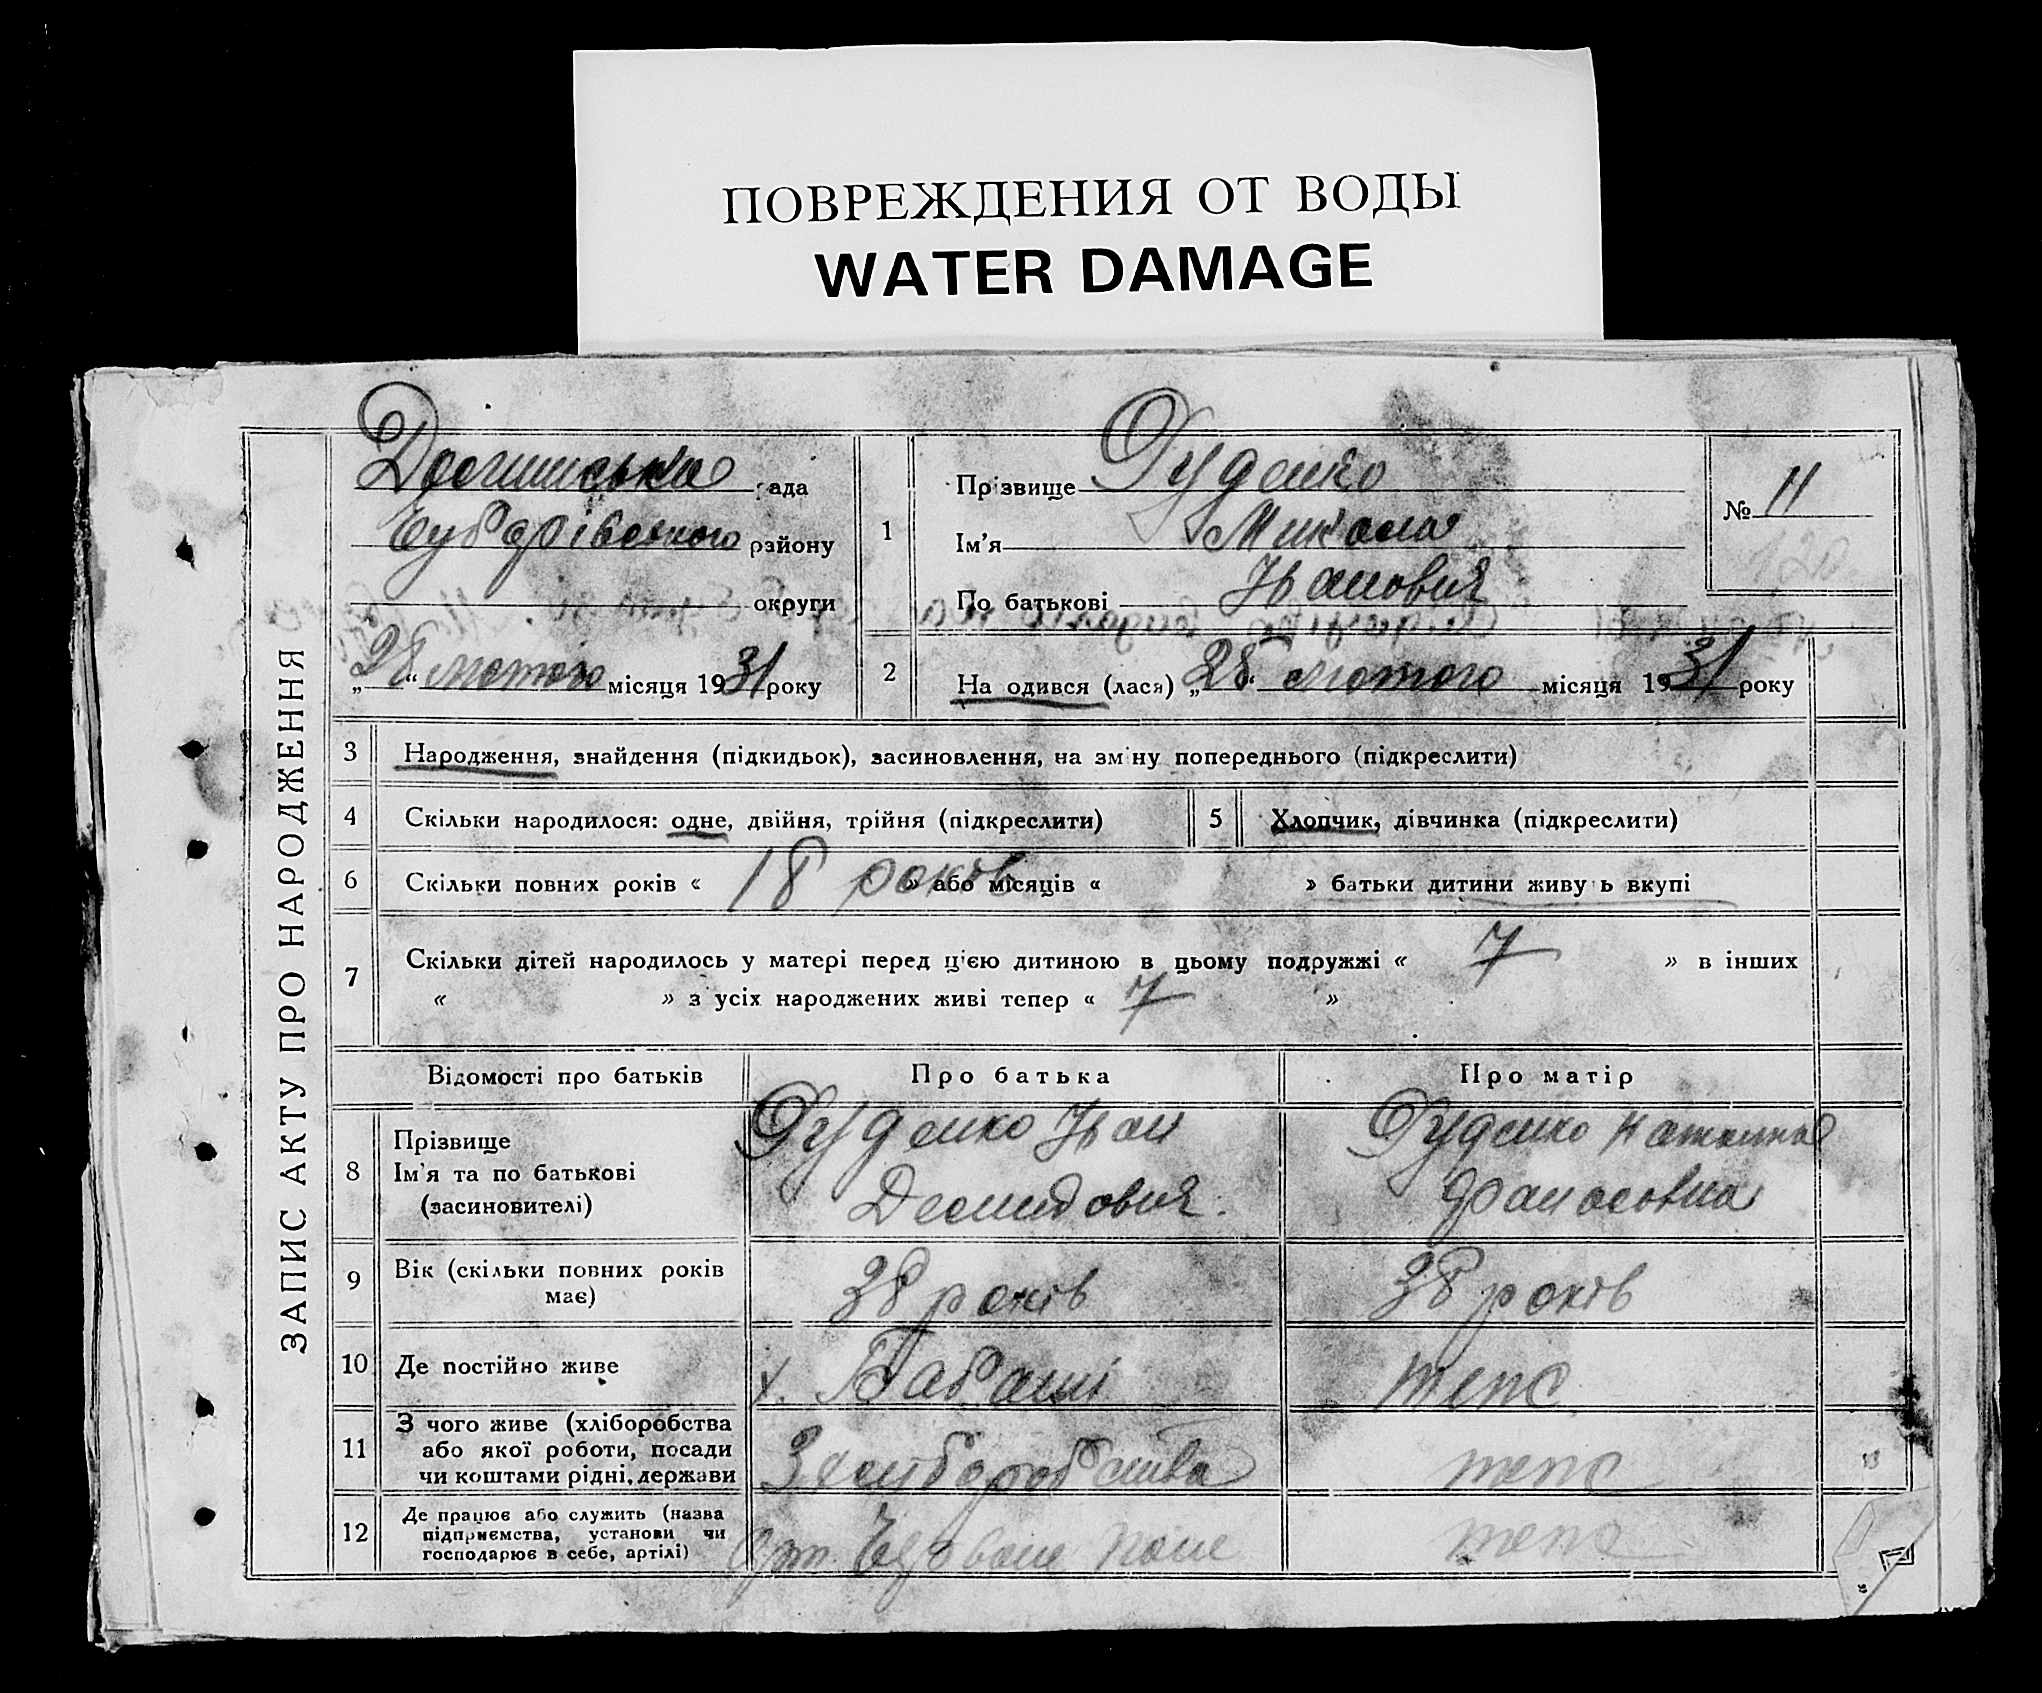 ПОВРЕЖДЕНИЯ ОТ ВОДЫ
WATER DAMAGE
ЗАПИС АКТУ ПРО НАРОДЖЕННЯ
рада
району
округи
„28“ лютого місяця 1931 року
1
Прізвище Руденко
Ім'я Микола
По батькові Іванович
№ 11
2
На одився (лася) „28“ лютого місяця 1931 року
3 Народження, знайдення (підкидьок), засиновлення, на зміну попереднього (підкреслити)
4 Скільки народилося: одне, двійня, трійня (підкреслити) 5 Хлопчик, дівчинка (підкреслити)
6 Скільки повних років « 18 років » або місяців « » батьки дитини живуть вкупі
7 Скільки дітей народилось у матері перед цією дитиною в цьому подружжі « 7 » в інших
« » з усіх народжених живі тепер « 7 »
Відомості про батьків Про батька Про матір
8 Прізвище
Ім'я та по батькові
(засиновителі)
Руденко Іван
Демидович.
Руденко
Фанасовна
9 Вік (скільки повних років
має)
38 років 38 років
10 Де постійно живе х. теж
11 З чого живе (хліборобства
або якої роботи, посади
чи коштами рідні, держави
З хліборобства теж
12 Де працює або служить (назва
підприємства, установи чи
господарює в себе, артілі)
арт. Червоне поле теж